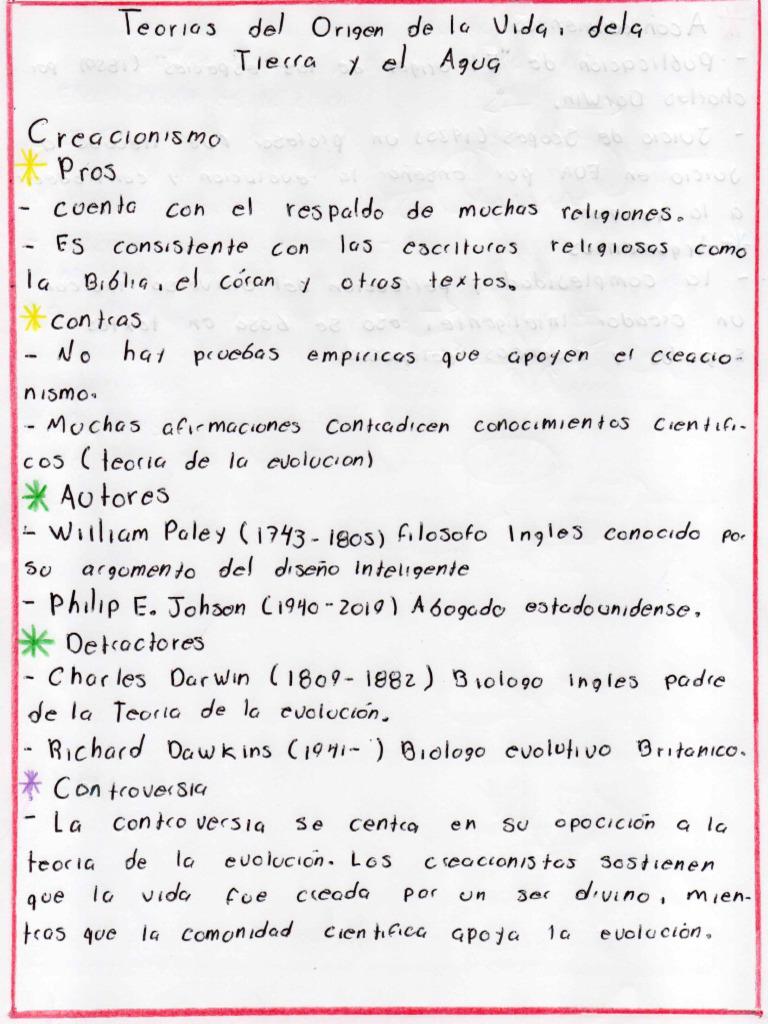 Teorias del Origen de la Vida, dela
Tierra y el Agua
Creacionismo
Pros
- cuenta con el respaldo de muchas religiones.
- Es consistente con las escrituras religiosas como
la Biblia, el córan y otros textos.
contras
- No hay pruebas empiricas que apoyen el creacio-
nismo.
- Muchas afirmaciones contradicen conocimientos cientifi-
cos (teoria de la evolucion)
Autores
- William Paley (1743-1805) filosofo Ingles conocido por
su argomento del diseño inteligente
- Philip E. Johson (1940-2019) Abogado estadounidense.
Detractores
- Charles Darwin (1809-1882) Biologo ingles padre
de la Teoria de la evolución.
- Richard Dawkins (1941- ) Biologo evolutivo Britanico.
Controversia
- La controversia se centra en su oposición a la
teoria de la evolución. Los creacionistas sostienen
que la vida fue creada por un ser divino, mien-
tras que la comunidad cientifica apoya la evolución.